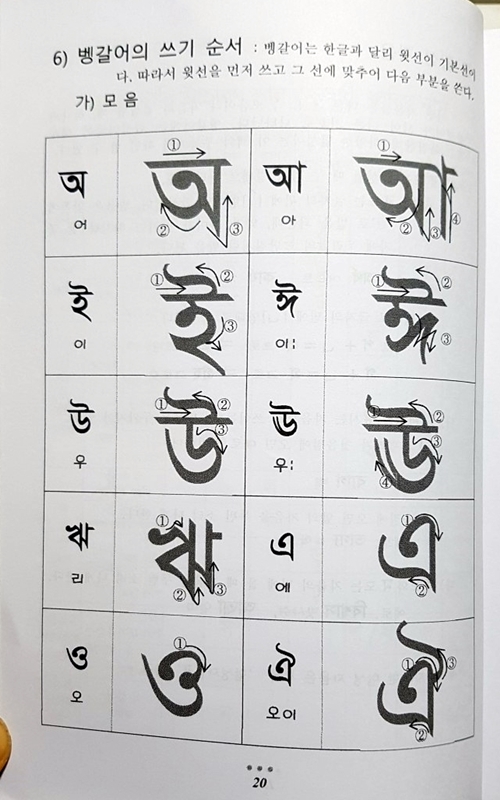 6) 벵갈어의 쓰기 순서 : 벵갈어는 한글과 달리 윗선이 기본선이
다. 따라서 윗선을 먼저 쓰고 그 선에 맞추어 다음 부분을 쓴다.
가) 모 음
অ ① ② ③ অ আ ① ② ③ ④ আ
어 아
ই ① ② ③ ই ঈ ① ② ③ ঈ
이 이:
উ ① ② ③ উ ঊ ① ② ③ ④ ঊ
우 우:
ঋ ① ② ③ ঋ এ ① ② এ
리 에
ও ① ও ঐ ① ② ③ ঐ
오 오이
20